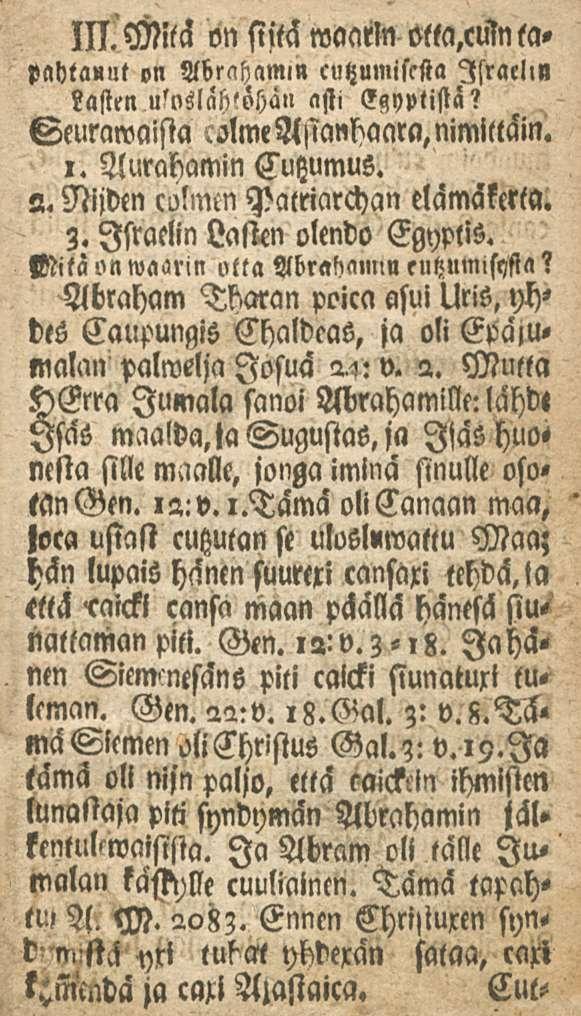 III. Mitä on sijtä waarin otta, cuin ta-
pahtanut on Abrahamin cutzumisesta Israelin
Lasten uloslähtöhän asti Egyptistä?
Seurawaista colme Asianhaara, nimittäin.
1. Aurahamin Cutzumus.
2. Nijden colmen Patriarchan elämäkerta.
3. Israelin Lasten olendo Egyptis.
Mitä on waarin otta Abrahamin cutzumisesta?
Abraham Tharan poica asui Uris, yh-
des Caupungis Chaldeas, ja oli Epäju-
malan palwelja Josuä 24: v. 2. Mutta
HErra Jumala sanoi Abrahamille: lähde
Isäs maalda, ja Sugustas, ja Isäs huo-
nesta sille maalle, jonga iminä sinulle oso-
tan Gen. 12: v. 1. Tämä oli Canaan maa,
joca usiast cutzutan se ulosluwattu Maa;
hän lupais hänen suurexi cansaxi tehdä, ja
että caicki cansa maan päällä hänesä siu-
nattaman piti. Gen. 12: v. 3-18. Ja hä-
nen Siemenesäns piti caicki siunatuxi tu-
leman. Gen. 22: v. 18. Gal. 3: v. 8. Tä-
mä Siemen oli Christus Gal. 3: v. 19. Ja
tämä oli nijn paljo, että caickein ihmisten
lunastaja piti syndymän Abrahamin jäl-
kentulewaisista. Ja Abram oli tälle Ju-
malan käskylle cuuliainen. Tämä tapah-
tui A. M. 2083. Ennen Christuxen syn-
dymistä yxi tuhat yhdexän sataa, caxi
kym̃endä ja caxi Ajastaica.
Cut-